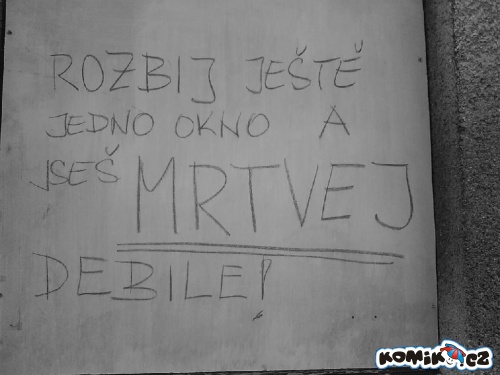 ROZBIJ JEŠTĚ
JEDNO OKNO A
JSEŠ MRTVEJ
DEBILE!
KOMIK.CZ